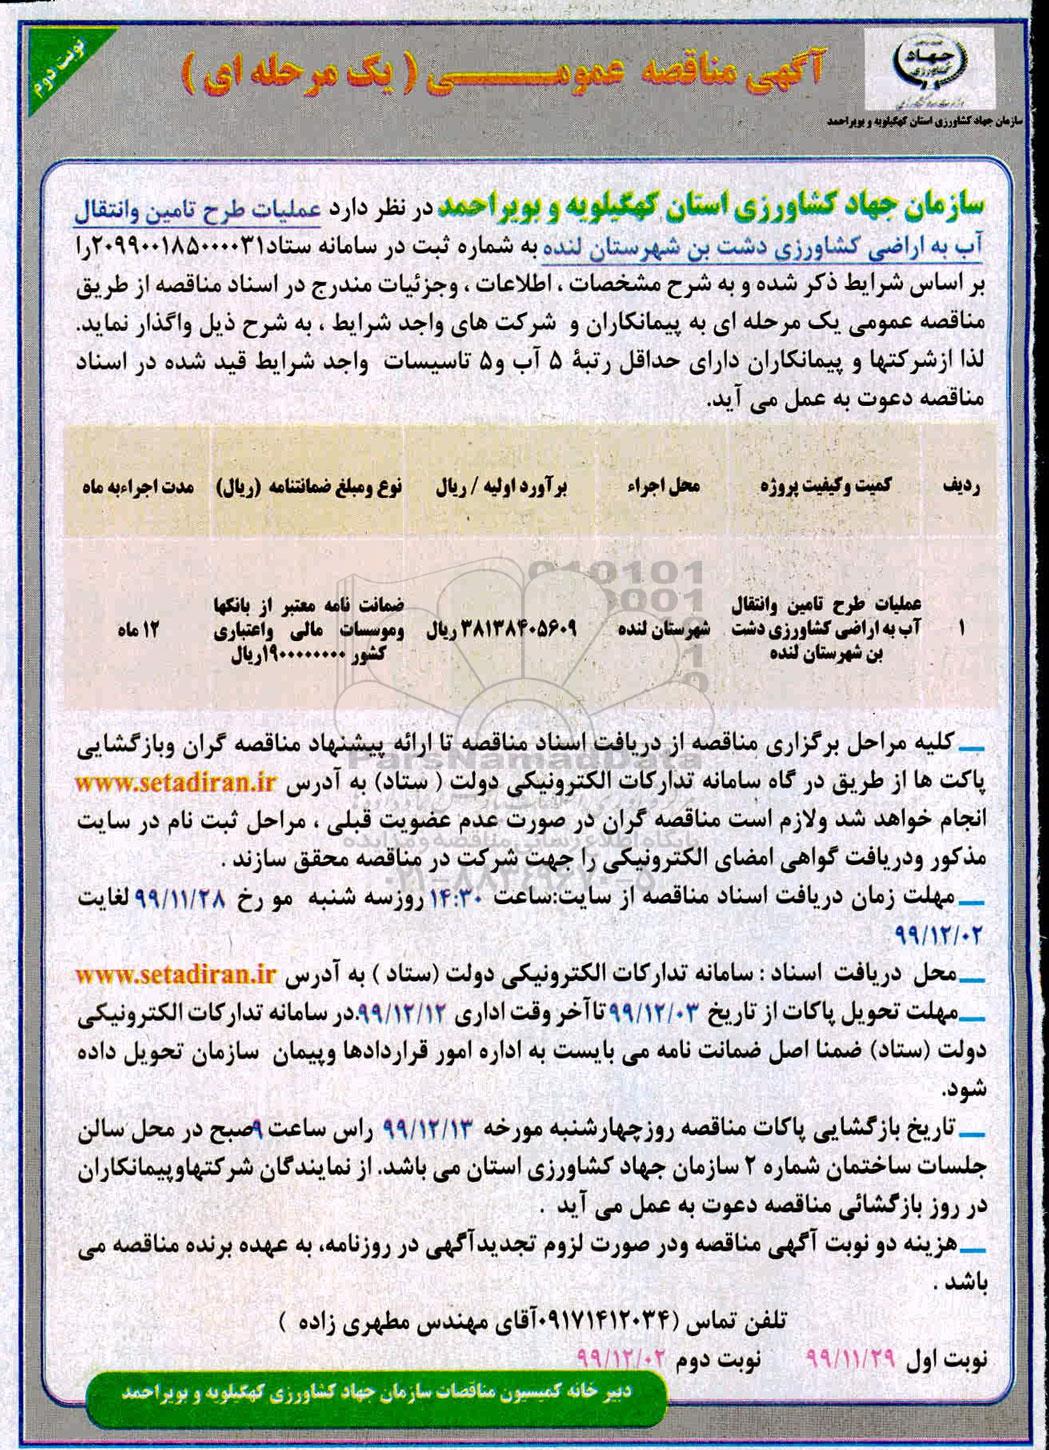 نوبت دوم
آگهی مناقصه عمومـــــــی ( یک مرحله ای )
جهاد
کشاورزی
سازمان جهاد کشاورزی استان کهگیلویه و بویراحمد
سازمان جهاد کشاورزی استان کهگیلویه و بویراحمد در نظر دارد عملیات طرح تامین وانتقال
آب به اراضی کشاورزی دشت بن شهرستان لنده به شماره ثبت در سامانه ستاد۲۰۹۹۰۰۱۸۵۰۰۰۰۳۱را
بر اساس شرایط ذکر شده و به شرح مشخصات ، اطلاعات ، وجزئیات مندرج در اسناد مناقصه از طریق
مناقصه عمومی یک مرحله ای به پیمانکاران و شرکت های واجد شرایط ، به شرح ذیل واگذار نماید.
لذا ازشرکتها و پیمانکاران دارای حداقل رتبهٔ ۵ آب و۵ تاسیسات واجد شرایط قید شده در اسناد
مناقصه دعوت به عمل می آید.
ردیف کمیت وکیفیت پروژه محل اجراء برآورد اولیه / ریال نوع ومبلغ ضمانتنامه (ریال) مدت اجراءبه ماه
۱
عملیات طرح تامین وانتقال
آب به اراضی کشاورزی دشت
بن شهرستان لنده
شهرستان لنده
۳۸۱۳۸۴۰۵۶۰۹ ریال
ضمانت نامه معتبر از بانکها
وموسسات مالی واعتباری
کشور ۱۹۰۰۰۰۰۰۰۰ریال
۱۲ ماه
ParsNamadData
پایگاه اطلاع رسانی مناقصه و مزایده
ــ کلیه مراحل برگزاری مناقصه از دریافت اسناد مناقصه تا ارائه پیشنهاد مناقصه گران وبازگشایی
پاکت ها از طریق در گاه سامانه تدارکات الکترونیکی دولت ( ستاد) به آدرس www.setadiran.ir
انجام خواهد شد ولازم است مناقصه گران در صورت عدم عضویت قبلی ، مراحل ثبت نام در سایت
مذکور ودریافت گواهی امضای الکترونیکی را جهت شرکت در مناقصه محقق سازند .
ــ مهلت زمان دریافت اسناد مناقصه از سایت:ساعت ۱۴:۳۰ روزسه شنبه مو رخ ۹۹/۱۱/۲۸ لغایت
۹۹/۱۲/۰۲
ــ محل دریافت اسناد : سامانه تدارکات الکترونیکی دولت (ستاد ) به آدرس www.setadiran.ir
ــ مهلت تحویل پاکات از تاریخ ۹۹/۱۲/۰۳ تاآخر وقت اداری ۹۹/۱۲/۱۲.در سامانه تدارکات الکترونیکی
دولت (ستاد) ضمنا اصل ضمانت نامه می بایست به اداره امور قراردادها وپیمان سازمان تحویل داده
شود.
ــ تاریخ بازگشایی پاکات مناقصه روزچهارشنبه مورخه ۹۹/۱۲/۱۳ راس ساعت ۹صبح در محل سالن
جلسات ساختمان شماره ۲ سازمان جهاد کشاورزی استان می باشد. از نمایندگان شرکتهاوپیمانکاران
در روز بازگشائی مناقصه دعوت به عمل می آید .
ــ هزینه دو نوبت آگهی مناقصه ودر صورت لزوم تجدیدآگهی در روزنامه، به عهده برنده مناقصه می
باشد .
تلفن تماس (۰۹۱۷۱۴۱۲۰۳۴آقای مهندس مطهری زاده )
نوبت اول ۹۹/۱۱/۲۹ نوبت دوم ۹۹/۱۲/۰۲
دبیر خانه کمیسیون مناقصات سازمان جهاد کشاورزی کهگیلویه و بویراحمد